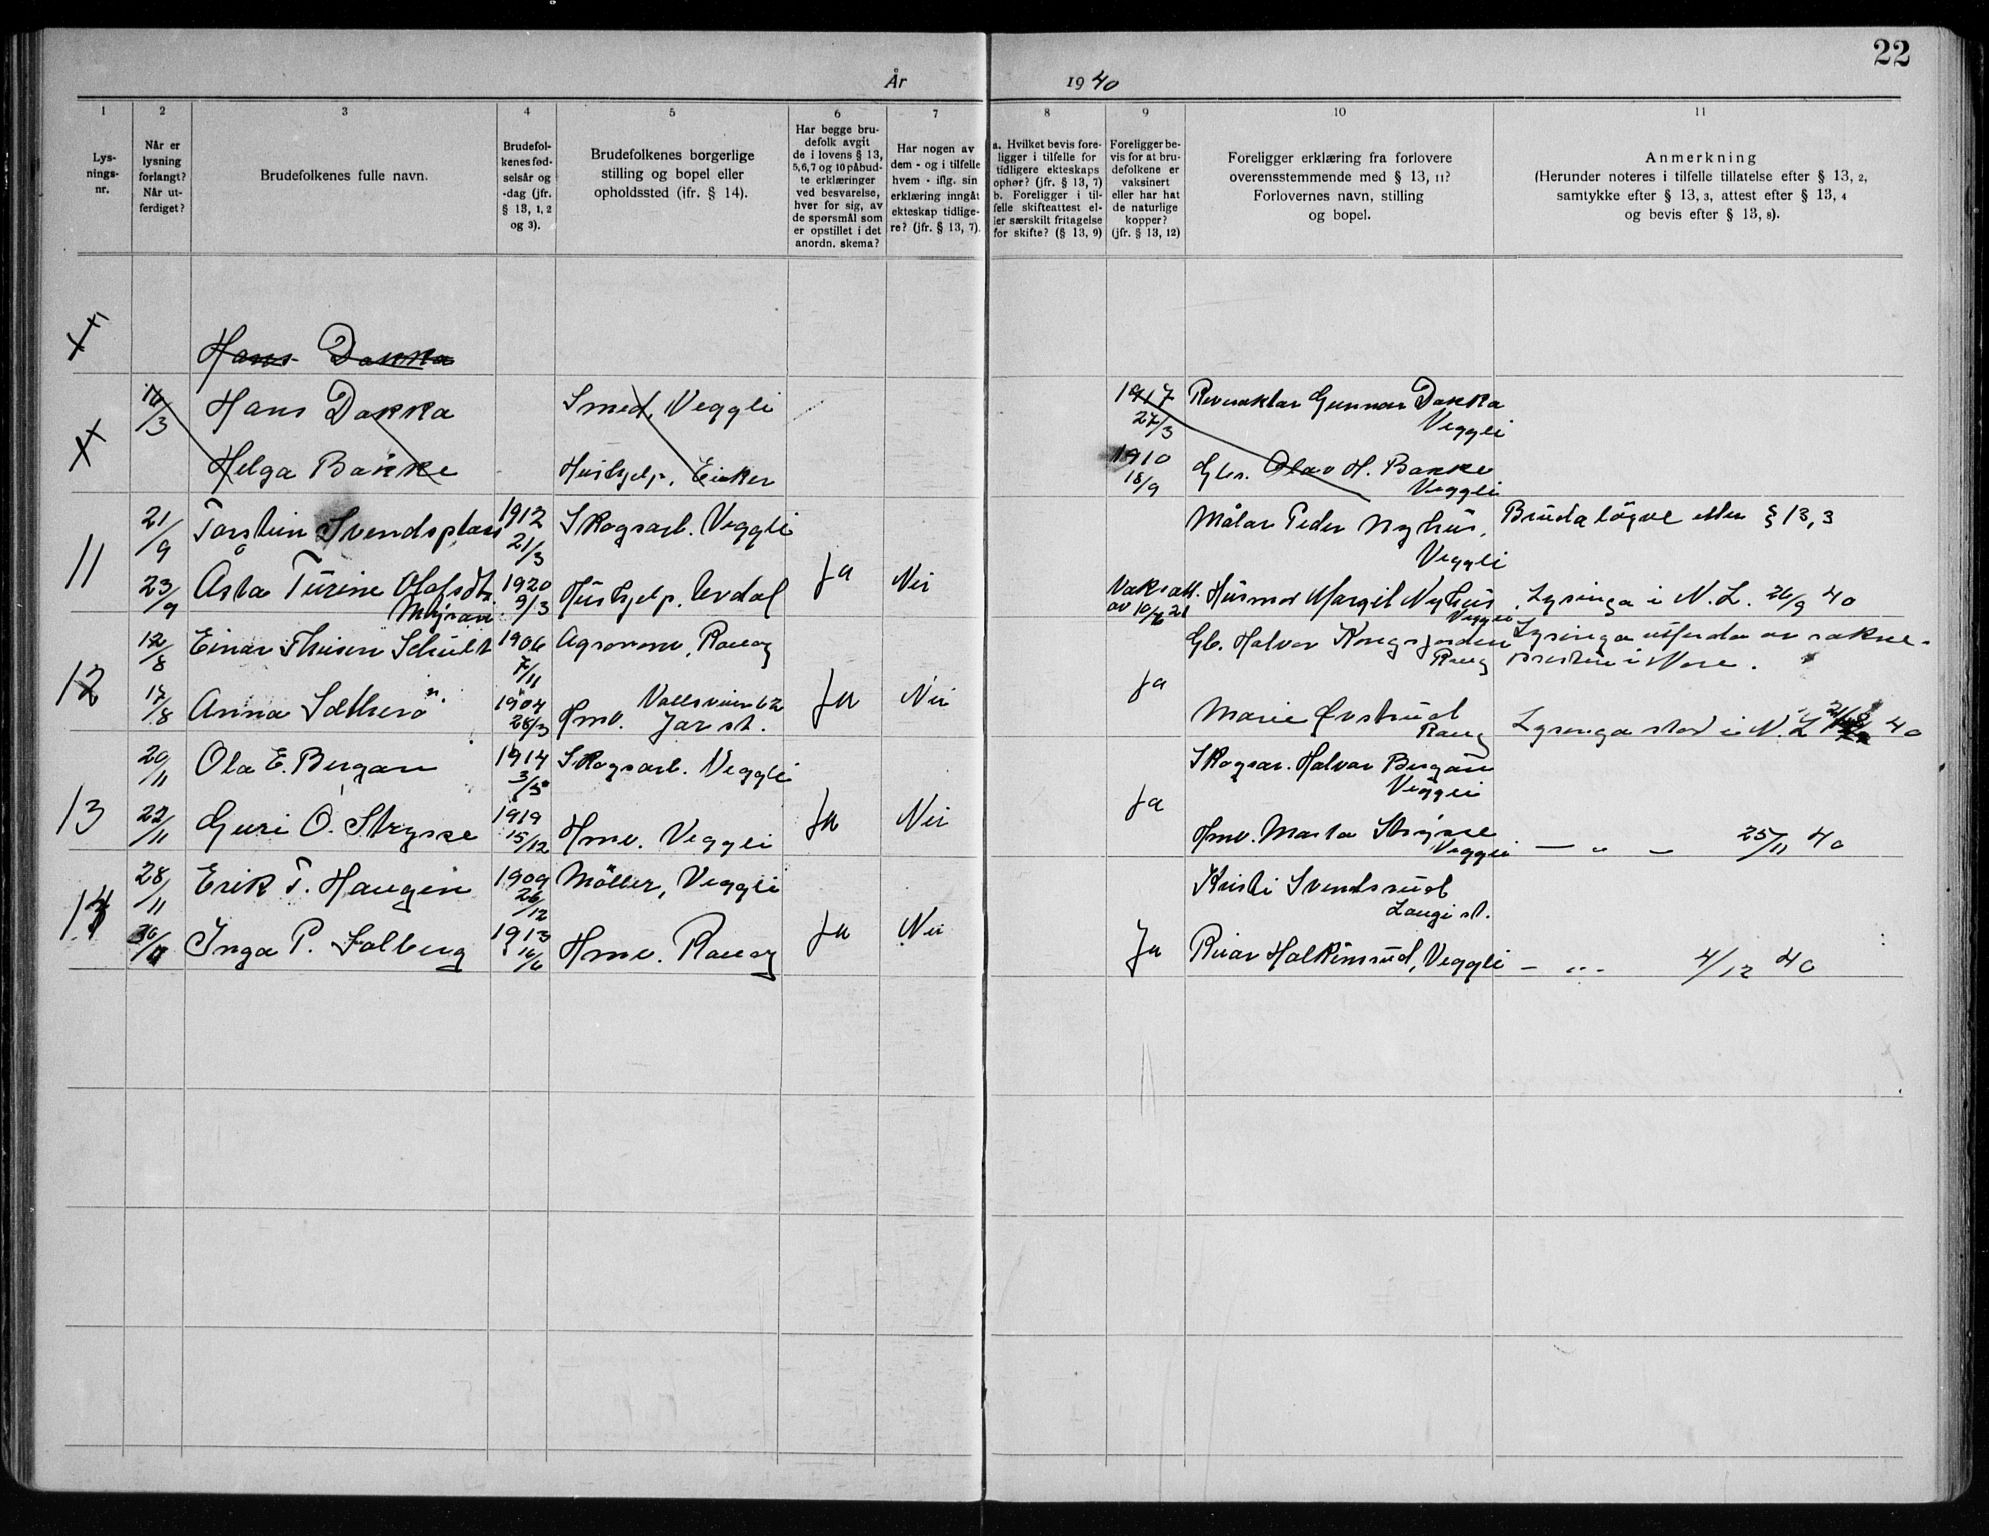 22
År 1940
1 2 3 4 5 6 7 8 9 10 11
Lys-
nings-
nr.
Når er
lysning
forlangt?
Når ut-
ferdiget?
Brudefolkenes fulle navn.
Brudefol-
kenes fød-
selsår og
-dag (jfr.
§ 13, 1, 2
og 3).
Brudefolkenes borgerlige
stilling og bopel eller
opholdssted (ifr. § 14).
Har begge bru-
defolk avgit
de i lovens § 13,
5,6,7 og 10 påbud-
te erklæringer
ved besvarelse,
hver for sig, av
de spørsmål som
er opstillet i det
anordn. skema?
Har nogen av
dem - og i tilfelle
hvem - iflg. sin
erklæring inngåt
ekteskap tidlige-
re? (jfr. § 13, 7).
a. Hvilket bevis fore-
ligger i tilfelle for
tidligere ekteskaps
ophør? (jfr. § 13, 7)
b. Foreligger i til-
felle skifteattest el-
ler særskilt fritagelse
for skifte? (§ 13, 9)
Foreligger be-
vis for at bru-
defolkene er
vaksinert
eller har hat
de naturlige
kopper?
(jfr. § 13, 12)
Foreligger erklæring fra forlovere
overensstemmende med § 13, 11?
Forlovernes navn, stilling
og bopel.
Anmerkning
(Herunder noteres i tilfelle tillatelse efter § 13, 2,
samtykke efter § 13, 3, attest efter § 13, 4
og bevis efter § 13, 8).
Hans Dakka
10/3 Hans Dakka Smed, Veggli 1917 27/3 Gunnar Dakka
Veggli
Helga Bakke Hushjelp, Eiker 1910 18/9 Gbr. Olav H. Bakke
Veggli
11 21/9 Torstein Svendsplass 1912 21/3 Skogsarb. Veggli Målar Peder Nyhus, Bruda løyve etter § 13, 3
Veggli
Ja Nei
23/9 Åsta Turine Olafsdtr. 1920 9/3 Hushjelp. Uvdal Vaksatt. Husmor Margit Nyhus Lysinga i N. L. 26/9 40
Myran av 10/6 21 Veggli
12 12/8 Einar Thisen Schult 1906 7/11 Agronom, Rollag Gb. Halvor Kongsjorden Lysinga utferda av sokne-
Rollag presten i Nore.
Ja Nei Ja
17/8 Anna Sætherø 1904 28/3 Hmv. Vollsveien 62 Marie Evstrud Lysinga stod i N. L 40
Jar st. Rollag
13 20/11 Ola E. Bergan 1914 3/5 Skogsarb. Veggli Skogsar. Halvor Bergan
Veggli
Ja Nei Ja
22/11 Guri O. Strysse 1919 15/12 Hmv. Veggli Hmv. Marta Strysse — " — 25/11 40
Veggli
14 28/11 Erik T. Haugen 1909 26/12 Møller, Veggli Kristi Svendsrud
Laugi st.
Ja Nei
30/11 Inga P. Solberg 1913 16/6 Hmv. Rollag Ja Reiar Halkinsrud, Veggli — " — 4/12 40